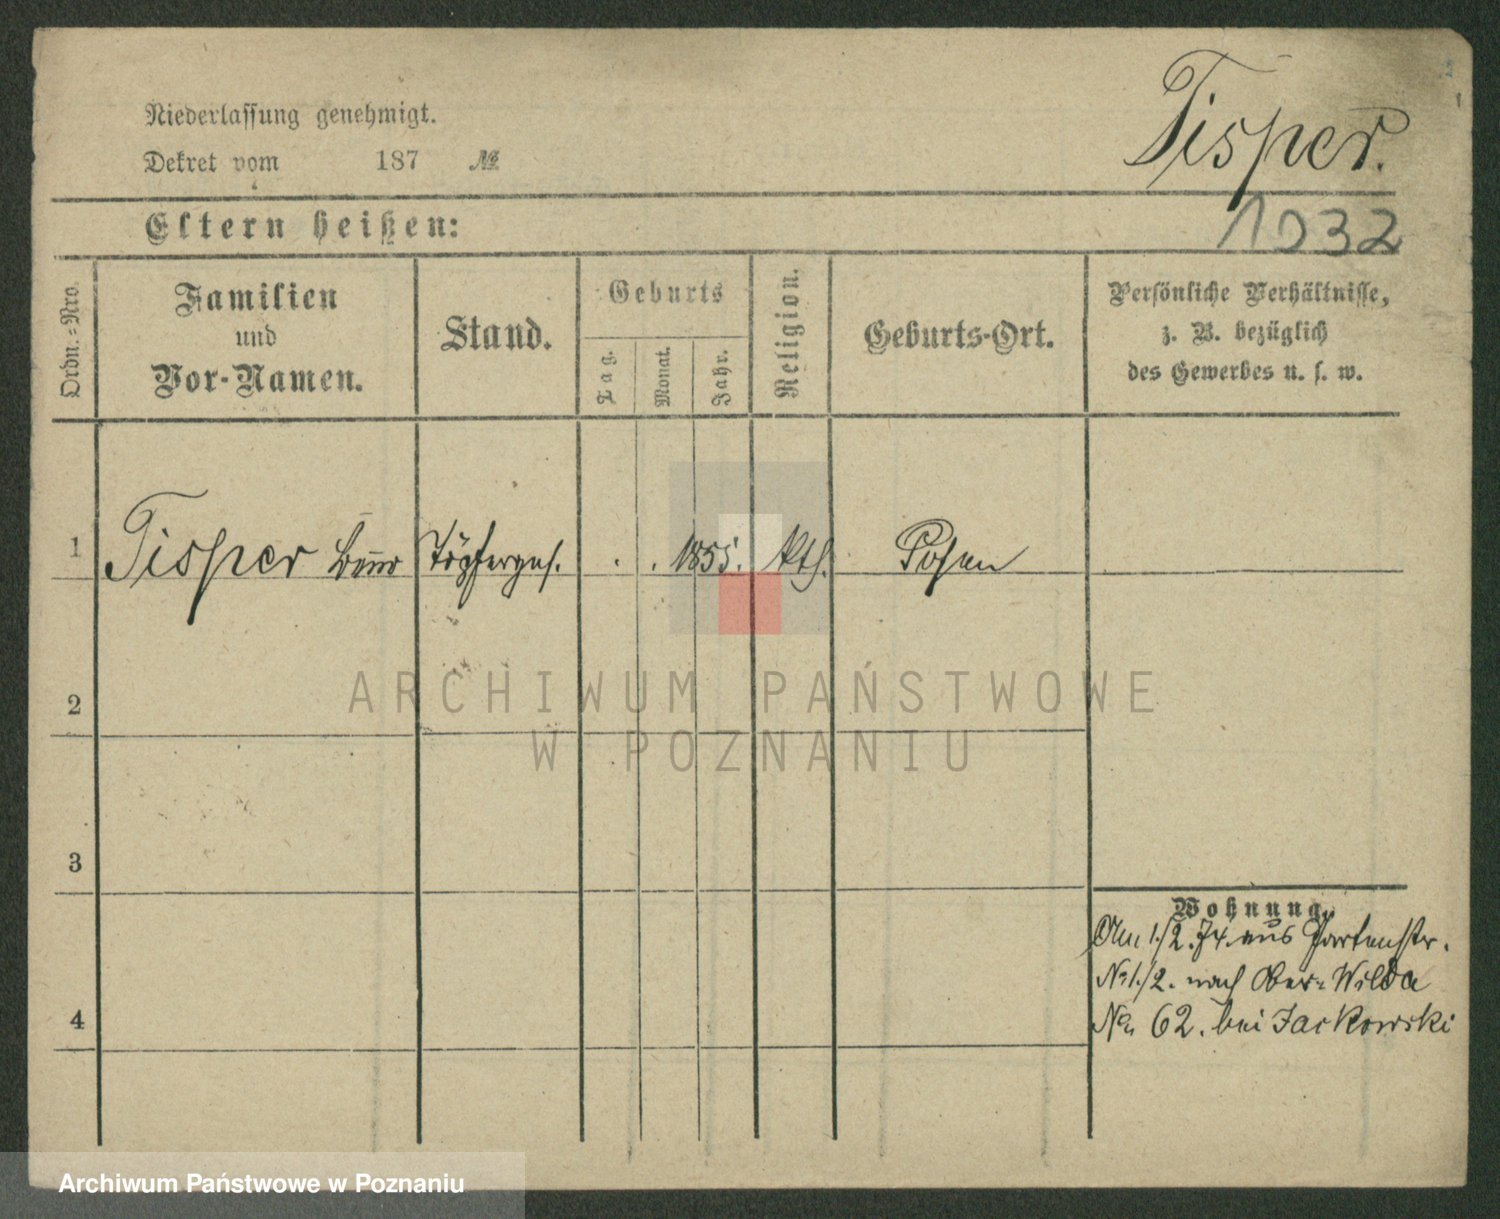 Niederlassung genehmigt.
Dekret vom 187 №
Tisper.
1032
Eltern heißen:
Ordn.-Nro.
Familien
und
Vor-Namen.
Stand.
Geburts
Tag.
Monat.
Jahr.
Religion.
Geburts-Ort.
Persönliche Verhältnisse,
z. B. bezüglich
des Gewerbes u. s. w.
1 Tisper Töpferges. . . 1855. kth. Posen
2
3
4
Wohnung.
Am 1./2. 74. aus Gartenstr.
No 1./2. nach Ober-Wilda
No 62. bei Jackowski
ARCHIWUM PAŃSTWOWE
W POZNANIU
Archiwum Państwowe w Poznaniu